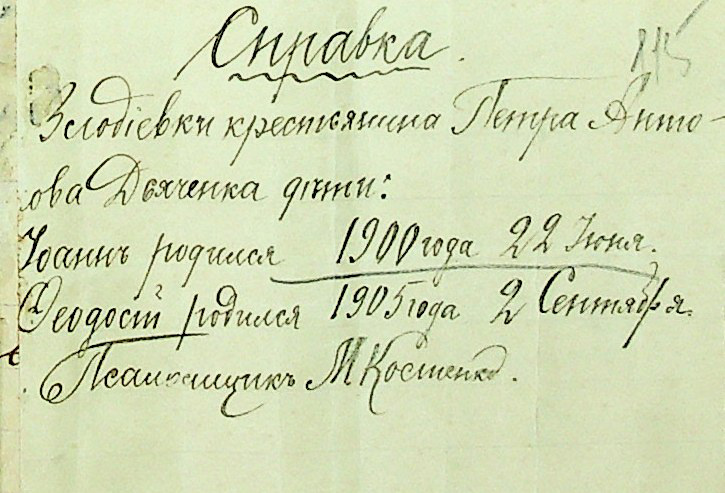 Справка.
115
Злодіевки крестьянина Петра Анто-
ова Дьяченка дѣти:
Іоаннъ родился 1900 года 22 Іюня.
Ѳеодосій родился 1905 года 2 Сентября.
Псаломщикъ М Костенко.